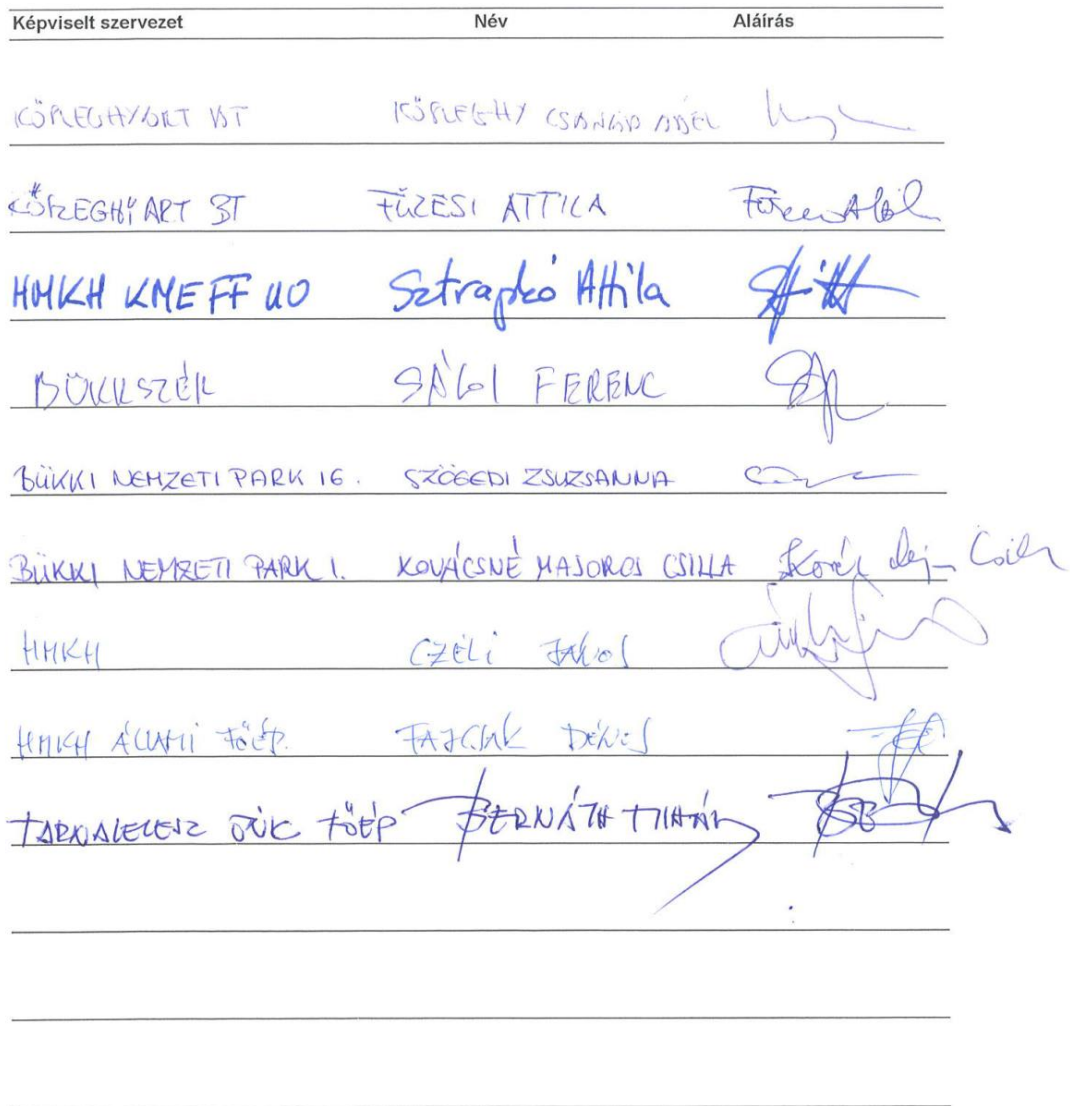 Képviselt szervezet Név Aláírás
KŐSZEGHY ART BT KŐSZEGHY CSANÁD ÁBEL
KŐSZEGHY ART BT FÜZESI ATTILA Füzesi Attila
HMKH KMEFF UO Sztrapkó Attila
BÜKKSZÉK SÁGI FERENC
BÜKKI NEMZETI PARK IG. SZÖGEDI ZSUZSANNA
BÜKKI NEMZETI PARK I. KOVÁCSNÉ MAJOROS CSILLA
HMKH CZÉLI
HMKH ÁLLAMI FŐÉP. FAJCSÁK DÉNES
TARNALELESZ FŐÉP BERNÁTH MIHÁLY